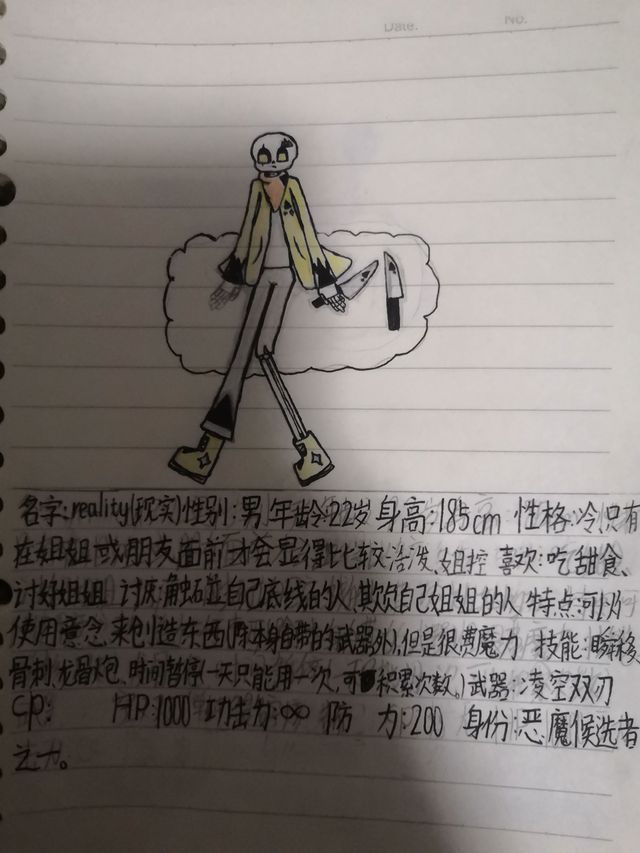 Date.
No.
名字:reality(现实)性别:男 年龄:22岁 身高:185cm 性格:冷,只有
在姐姐或朋友面前才会显得比较活泼、姐控 喜欢:吃甜食、
讨好姐姐 讨厌:触碰自己底线的人,欺负自己姐姐的人 特点:可以
使用意念来创造东西(除本身自带的武器外),但是很费魔力 技能:瞬移、
骨刺、龙骨炮、时间暂停(一天只能用一次,可积累次数。)武器:凌空双刃
CP: HP:1000 功击力:∞ 防 力:200 身份:恶魔候选者
之一。